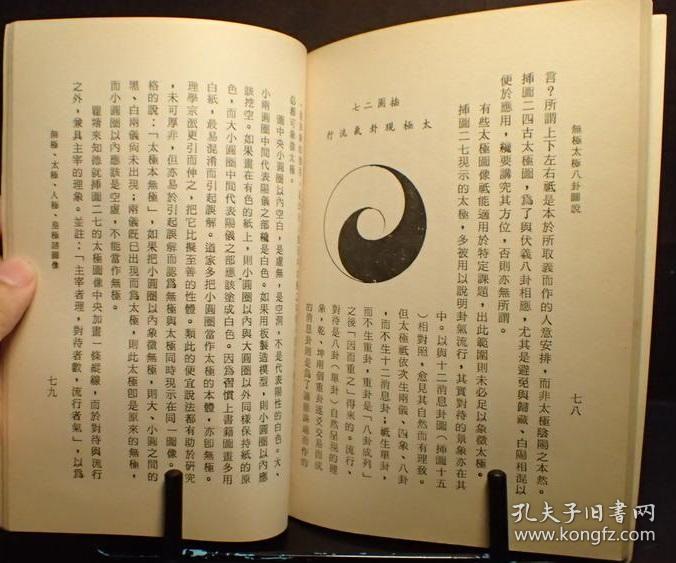 無極太極八卦圖說
七八
言?所謂上下左右祇是本於所取義而作的人意安排,而非太極陰陽之本然。
插圖二四古太極圖,為了與伏羲八卦相應,尤其是避免與歸藏、白陽相混以
便於應用,纔要講究其方位,否則亦無所謂。
有些太極圖像祇能適用於特定課題,出此範圍則未必足以象徵太極。
插圖二七現示的太極,多被用以說明卦氣流行,其實對待的景象亦在其
中。以與十二消息卦圖(插圖十五
)相對照,愈見其自然而有理致。
但太極祇依次生兩儀、四象、八卦
,而不生十二消息卦;祇生單卦,
而不生重卦,重卦是「八卦成列」
之後「因而重之」得來的。流行、
對待是八卦(單卦)自然呈現的理
象,乾、坤兩個重卦逐爻交易而成
的消息卦圖是為了
插圖二七
太極現卦氣流行
圖中央小圓圈以內空白,是虛無,是空洞,不是代表陽性的白色。大、
小兩圓圈中間代表陽儀之部纔是白色。如果用板製造模型,則小圓圈以內應
該挖空。如果畫在有色的紙上,則小圓圈以內與大圓圈以外同樣保持紙的原
色,而大小圓圈中間代表陽儀之部應該塗成白色。因為習慣上書籍圖畫多用
白紙,最易混淆而引起誤解。道家多把小圓圈當作太極的本體,亦卽無極。
理學宗師更引而伸之,把它比擬至善的性體。類此的便宜說法都有助於研究
,未可厚非,但亦易於引起誤解而認為無極與太極同時現示在同一圖像。嚴
格的說:「太極本無極」,如果把小圓圈以內象徵無極,則大、小圓之間的
黑、白兩儀尚未出現;兩儀既已出現而為太極,則此太極卽是原來的無極,
而小圓圈以內應該是空虛,不能當作無極。
瞿塘來知德就插圖二七的太極圖像中央加畫一條縱線,而於對待與流行
之外,兼具主宰的理象。並註:「主宰者理,對待者數,流行者氣」,以為
無極、太極、人極、皇極諸圖像
七九
孔夫子旧书网
www.kongfz.com